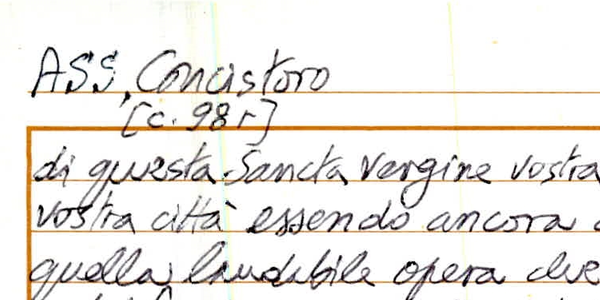 ASS, Concistoro
[c. 98r]
di questa Sancta Vergine vostra
vostra città essendo ancora
quella laudabile opera che